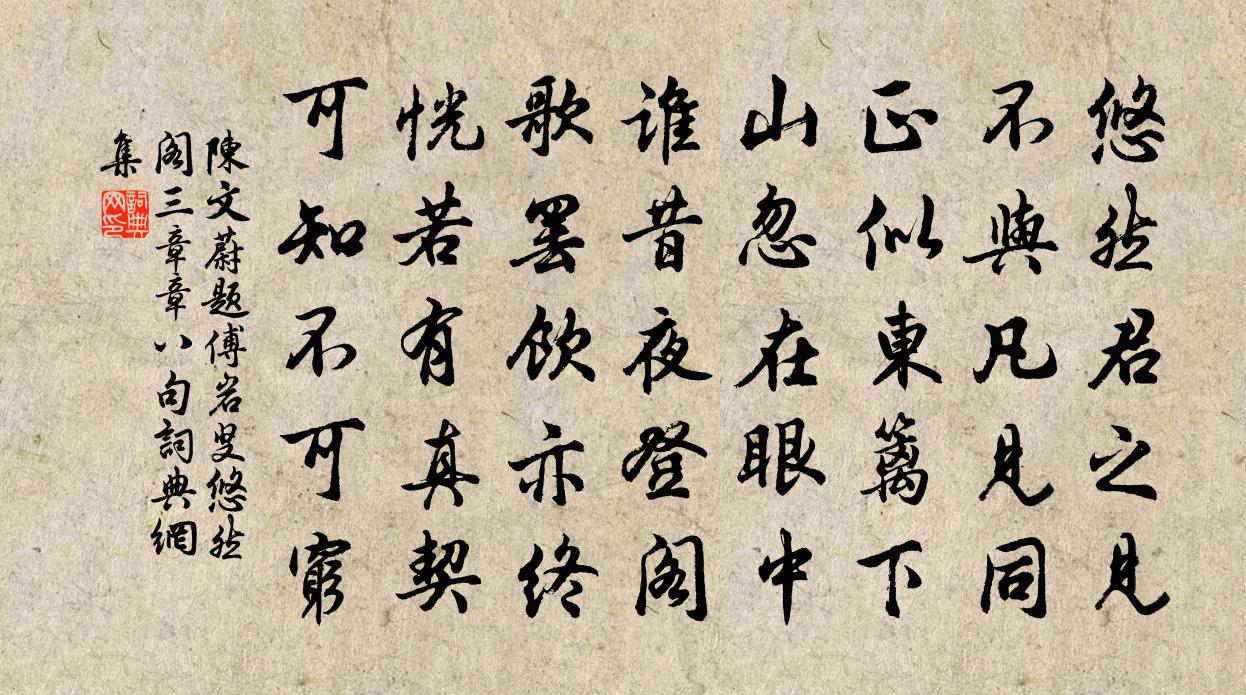 悠然君之見
不與凡見同
正似東籬下
山忽在眼中
誰昔夜登閣
歌罷飲亦終
恍若有真契
可知不可窮
陳文蔚題傅岩叟悠然
閣三章章八句詞典網
集
詞典
网印